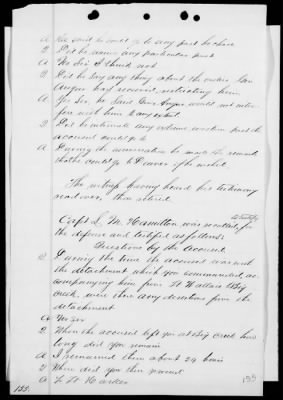 A He said he could go to any post he chose
Q Did he name any particular post
A No Sir I think not
Q Did he say any thing about the orders Gen
Augur had received restricting him
A Yes Sir, he said Gen Augur would not inter-
fere with him to any extent
Q Did he intimate any extreme western post the
accused could go to
A During the conversation he made the remark
that he could go to Denver if he wished
The witness having heard his testimony
read over, then retired.
Capt L. M. Hamilton was recalled for
the defense and testified as follows:
Questions by the Accused
Q During the time the accused was with
the detachment which you commanded, ac-
companying him from Ft Wallace to Big
Creek, were there any desertions from the
detachment
A Yes sir
Q When the accused left you at Big Creek how
long did you remain
A I remained there about 24 hours
Q Where did you then proceed
A To Ft Harker
155.
155